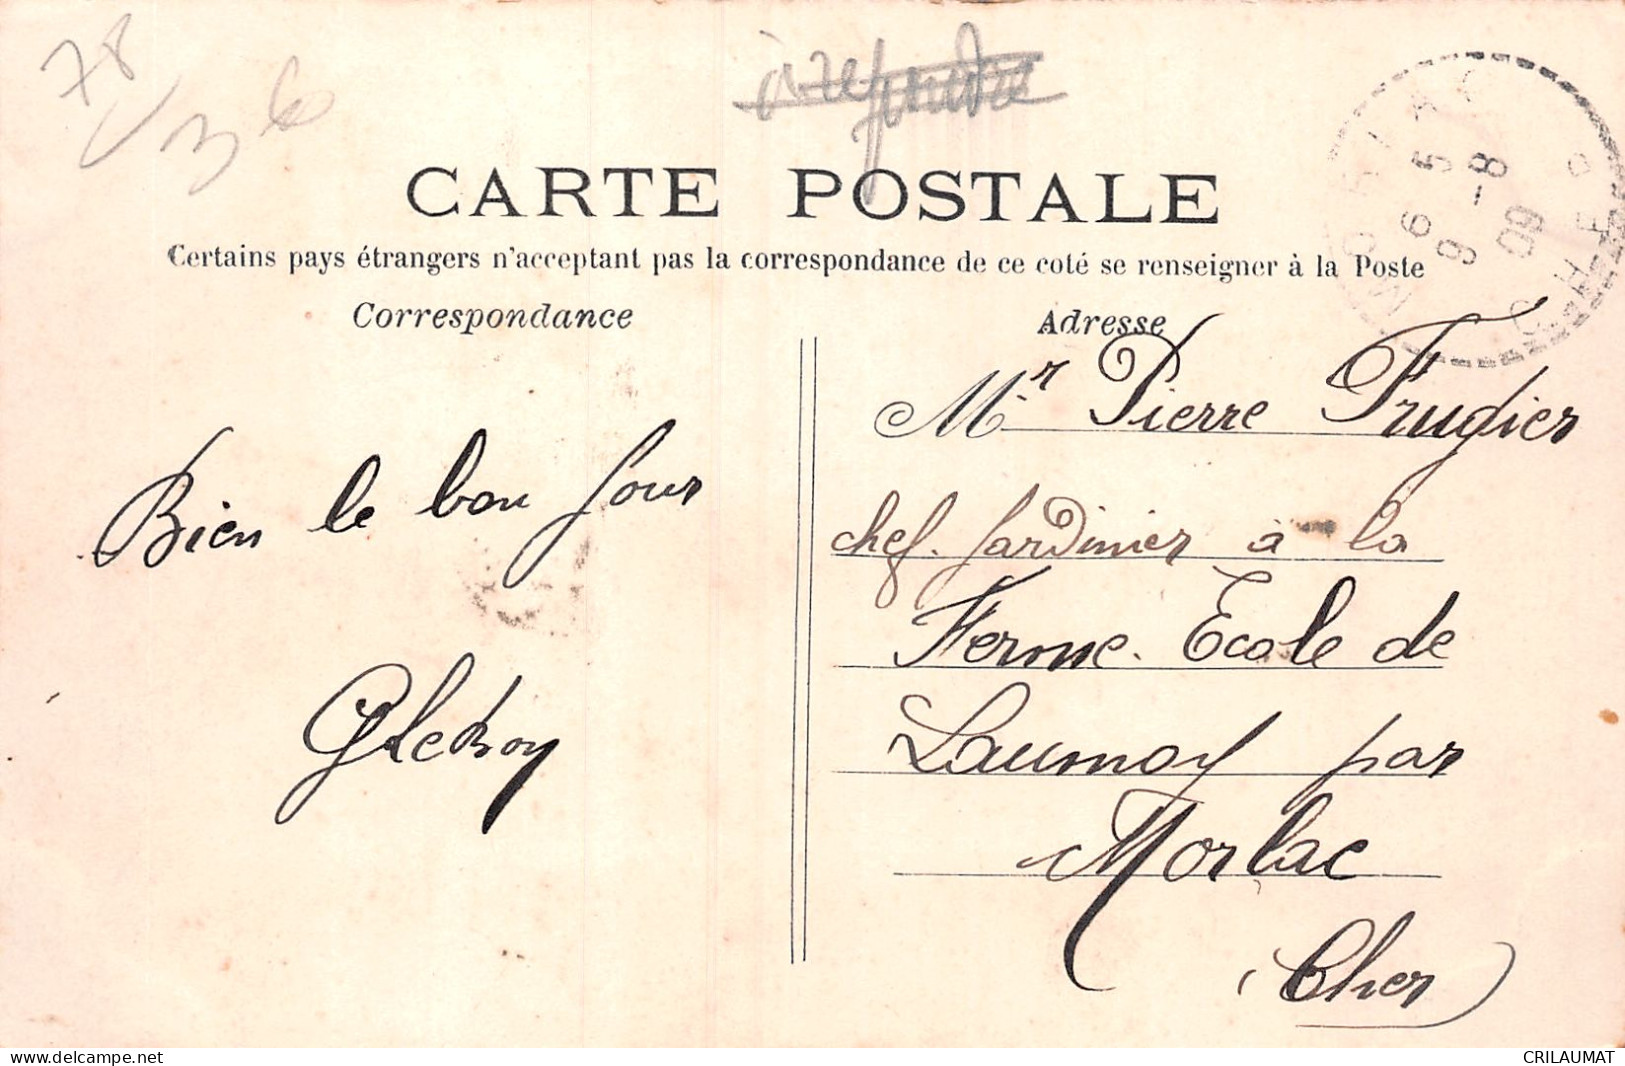 78
36
à refendre
CARTE POSTALE
Certains pays étrangers n'acceptant pas la correspondance de ce coté se renseigner à la Poste
Correspondance
Adresse
Bien le bon Jour
GLeRoy
Mr Pierre Frugier
chef. Jardinier à la
Ferme. Ecole de
Laumoy par
Morlac
(Cher)
6 5
9 -8
09
CHER
delcampe.net
CRILAUMAT